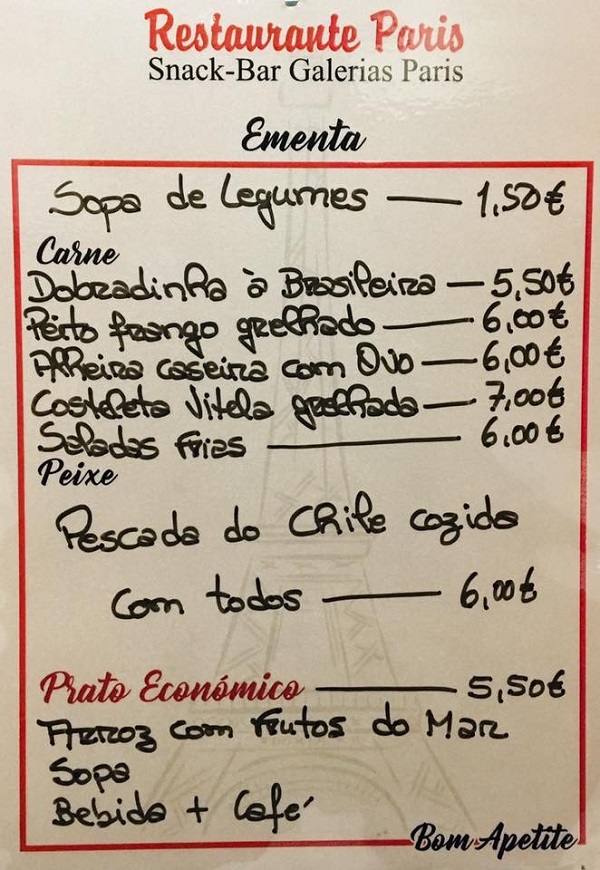 Restaurante Paris
Snack-Bar Galerias Paris
Ementa
Sopa de Legumes — 1,50€
Carne
Dobradinha à Brasileira — 5,50€
Peito frango grelhado — 6,00€
Alheira caseira com Ovo — 6,00€
Costeleta Vitela grelhada — 7,00€
Saladas frias — 6,00€
Peixe
Pescada do Chile cozida
com todos — 6,00€
Prato Económico — 5,50€
Arroz com frutos do Mar
Sopa
Bebida + Café
Bom Apetite